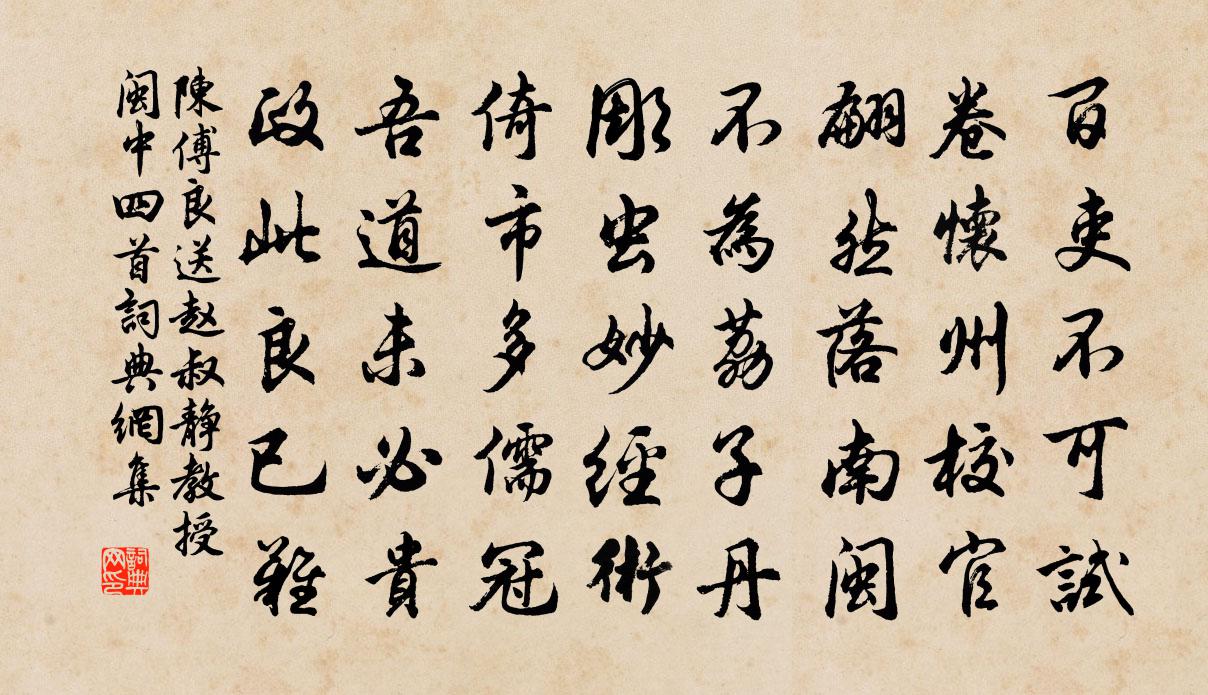 百吏不可試
卷懷州校官
翩然落南閩
不為荔子丹
彫虫妙經術
倚市多儒冠
吾道未必貴
政此良已難
陳傅良送赵叔静教授
閩中四首詞典網集
詞典网印